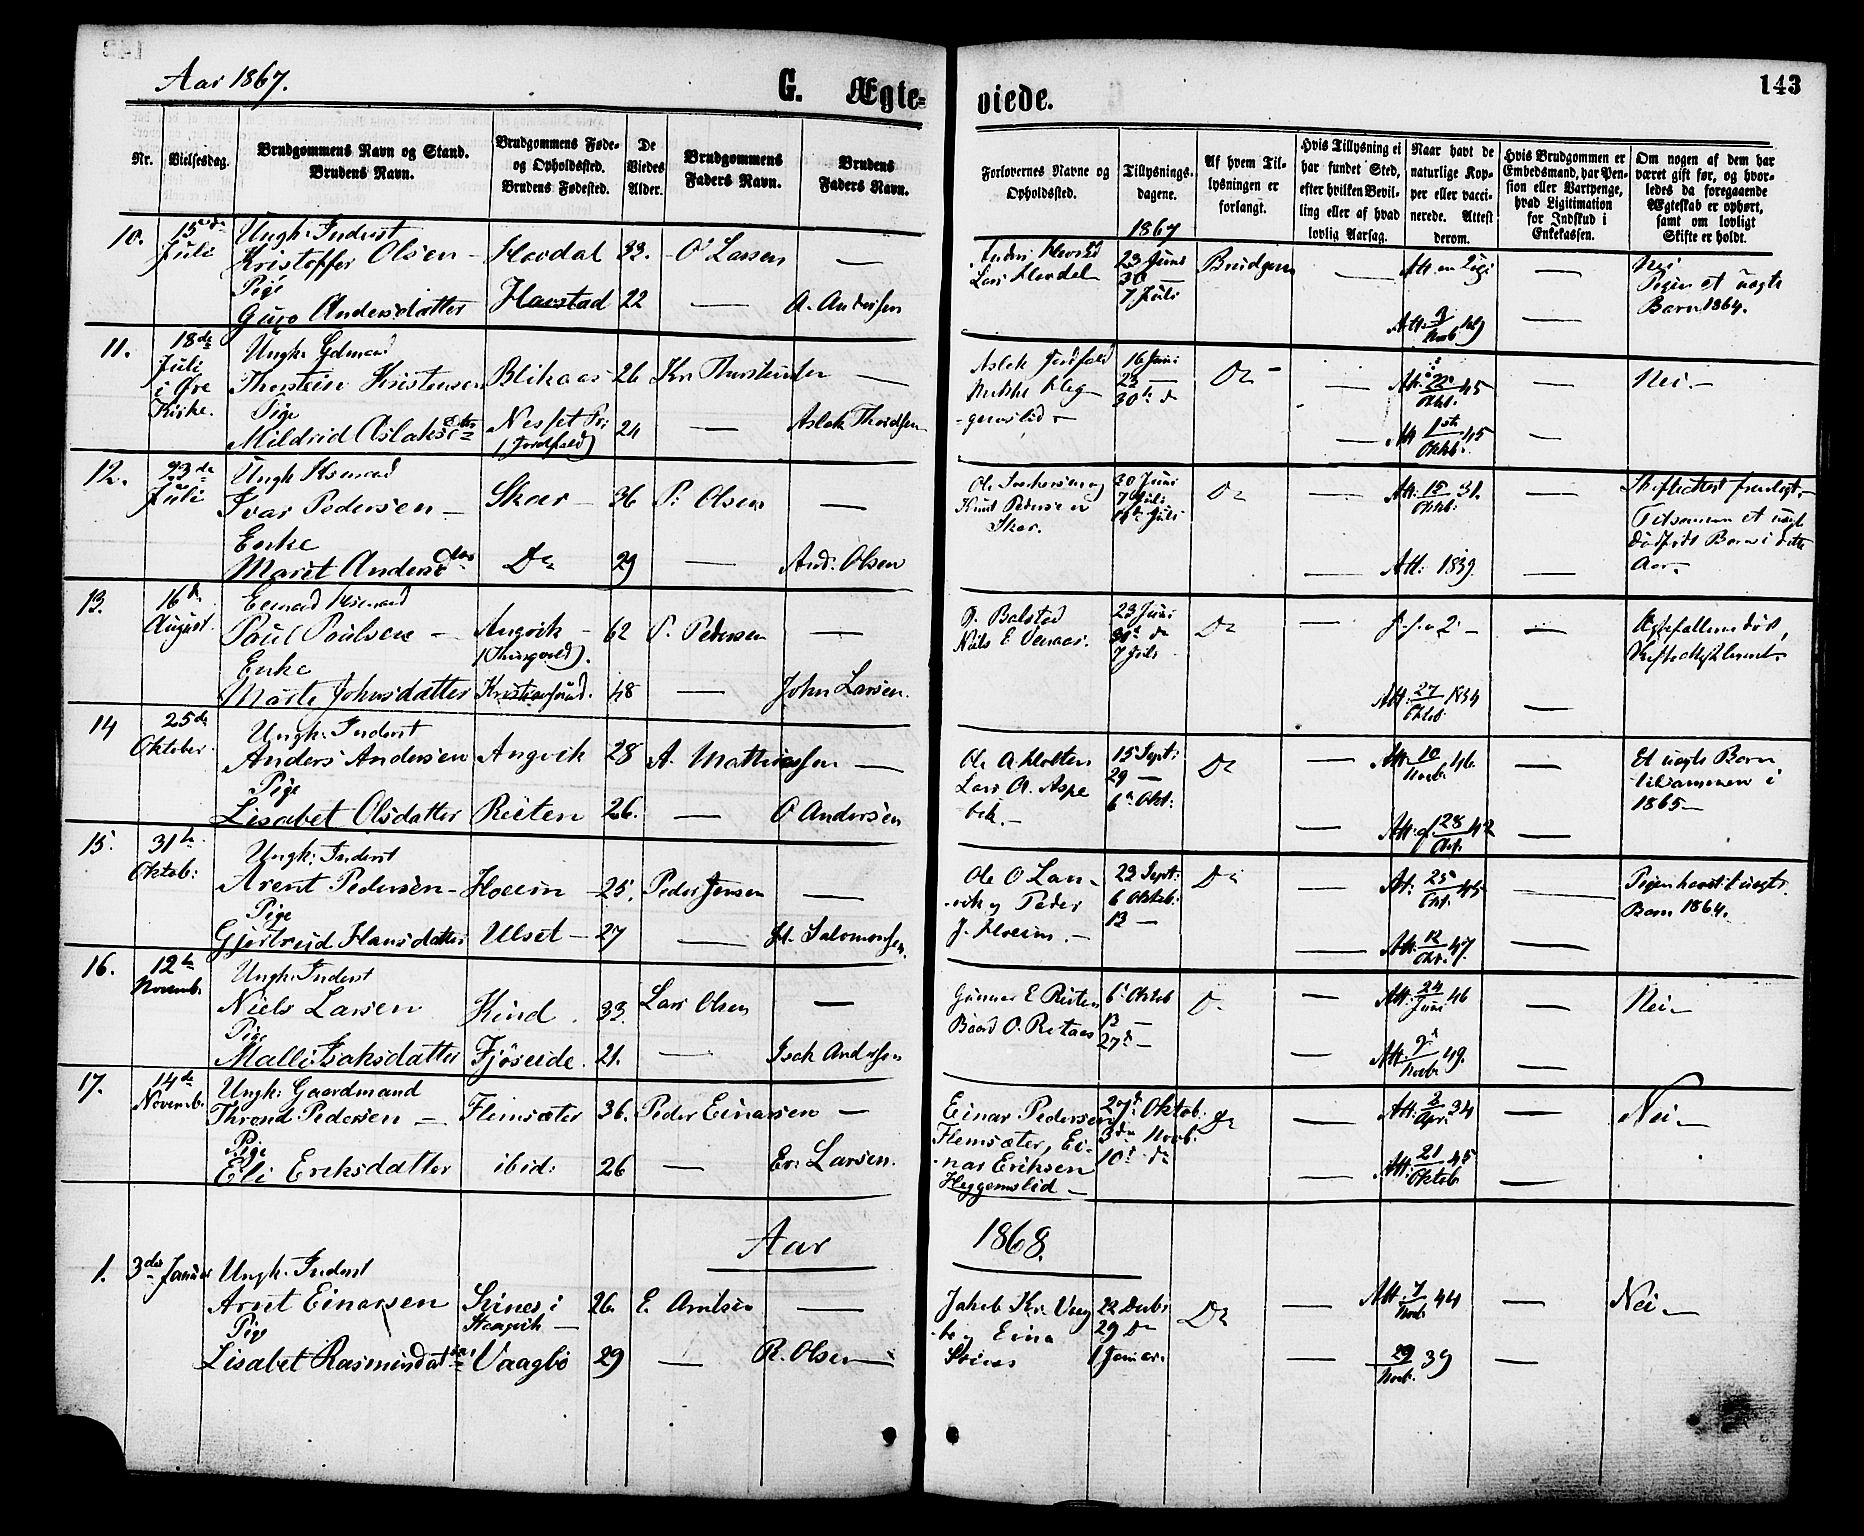 Aar 1867.
G. Ægte-
viede.
143
Nr.
Vielsesdag.
Brudgommens Navn og Stand.
Brudens Navn.
Brudgommens Føde-
og Opholdssted.
Brudens Fødested.
De
Viedes
Alder.
Brudgommens
Faders Navn.
Brudens
Faders Navn.
Forlovernes Navne og
Opholdssted.
Tillysnings-
dagene.
Af hvem Til-
lysningen er
forlangt.
Hvis Tillysning ei
har fundet Sted,
efter hvilken Bevil-
ling eller af hvad
lovlig Aarsag.
Naar havt de
naturlige Kop-
per eller vacci-
nerede. Attest
derom.
Hvis Brudgommen er
Embedsmand, har Pen-
sion eller Vartpenge,
hvad Legitimation
for Indskud i
Enkekassen.
Om nogen af dem har
været gift før, og hvor-
ledes da foregaaende
Ægteskab er ophørt,
samt om lovligt
Skifte er holdt.
1867
10. 15de Juli
Ungk. Inderst
Kristoffer Olsen - Hovdal 33. O Larsen —
Pige
Guro Andersdatter Harstad 22 — A. Andersen
Lars Hovdal
23 Juni
30 —
7 Juli
Brudgom
Nei
Pigen et uægte
Barn 1864.
11. 18de Juli i Øre Kirke.
Ungk. Gdmand
Thorstein Kristensen Blikaas 26 Kr. Thorstensen —
Pige
Mildrid Aslaksdtr Nesset Pr: (Jordfald) 24 — Aslak Thordsen
Aslak Jordfald
16 Juni
23 —
30te d
Do
Att. 45
Oktb.
Att 1ste Oktb. 45
Nei —
12. 23de Juli
Ungk Husmand
Ivar Pedersen — Skar — 36 P: Olsen —
Enke
Maret Andersdtr Do 29 — And: Olsen
Knut Pedersen
Skar.
30 Juni
7 Juli
14de Juli
Do
Att. 15 Oktb: 31.
Att: 1839.
Tilsammen et uægte
dødfødt Barn i dette
Aar.
13. 16d August
Enkemand Husmand
Paul Paulsen — Angvik — (Thingvold). 62 P. Pedersen —
Enke
Marte Johnsdatter Kristiansund. 48 — John Larsen.
P. Bolstad
23 Juni
30te d
7 Juli
Do
Att. 27 Oktob. 1834
14 25de Oktober.
Ungk: Inderst
Anders Andersen Angvik 28 A. Mathiassen —
Pige
Lisabet Olsdatter Reiten 26. — O Andersen
Ole A Holten
Lars A. Aspe
bek. —
15 Sept:
29 —
6te Okt:
Do
Att. 10 Novb. 46.
Att. 28 Okt. 42
Et uægte Barn
tilsammen i
1865 —
15. 31te Oktob:
Ungk: Inderst
Arent Pedersen — Hoeim — 25. Peder Jensen —
Pige
Gjertrud Hansdatter Ulset — 27 — H. Salomonsen.
Ole O Lan-
vik og Peder
J. Hoeim. —
22 Sept:
6 Oktob:
13 —
Do
Att. 25 Okt. 45
Att. 12 Okt. 47.
Pigen havt et uægte
Barn 1864.
16. 12te Novemb.
Ungk: Inderst
Niels Larsen Hind . 33. Lars Olsen —
Pige
Malli Isaksdatter Fjøseide. 21. — Isak Andersen
Gunnar E Reiten
Baard O. Reitaas
6te Oktob
13 —
27d —
Do
Att. 24 Juni 46
Att. 2 Novb. 49.
Nei —
17. 14de Novemb.
Ungk: Gaardmand
Thrond Pedersen — Flemsæter 36. Peder Einarsen —
Pige
Eli Eriksdatter ibid: 26 — Er: Larsen.
Einar Pedersen
Flemsæter, Ei-
nar Eriksen
Heggemslid —
27d Oktob.
3die Novb.
10d do
Do
Att. 2 Apr. 34
Att: 21 Oktob 45
Nei —
Aar 1868.
1. 3die Januar
Ungk. Inderst
Arnt Einarsen Stines i Stangvik — 26. E. Arntsen —
Pige
Lisabet Rasmusdatter Vaagbø 29 — R. Olsen —
Jakob Kr. Vaag
bø og Eina
Stines
22 Decbr
29 Do
1 Januar.
Do
Att. 7 Novb. 44
29 Novb. 39
Nei —